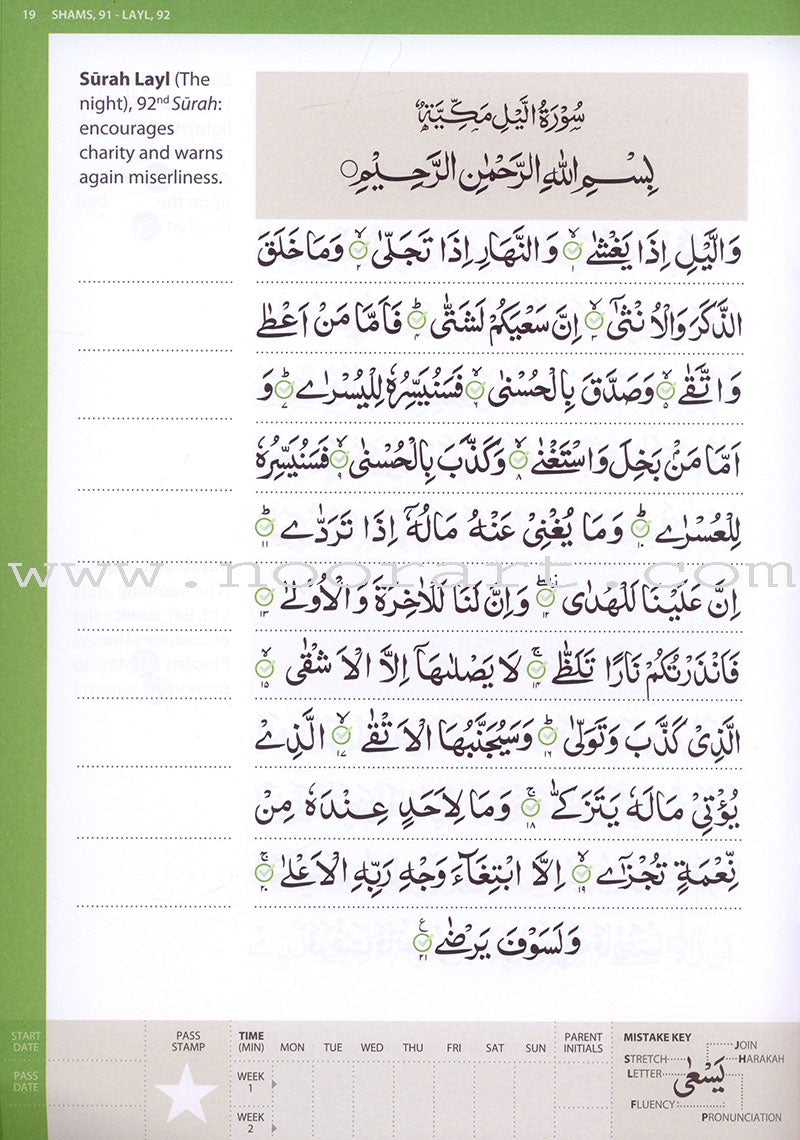 19 SHAMS, 91 - LAYL, 92
Sūrah Layl (The
night), 92nd Sūrah:
encourages
charity and warns
again miserliness.
سُوْرَةُ الَّيْلِ مَكِّيَّةٌ
بِسْمِ اللّٰهِ الرَّحْمٰنِ الرَّحِيْمِ
وَالَّيْلِ اِذَا يَغْشٰى ۙ۱ وَالنَّهَارِ اِذَا تَجَلّٰى ۙ۲ وَمَا خَلَقَ
الذَّكَرَ وَالْاُنْثٰٓى ۙ۳ اِنَّ سَعْيَكُمْ لَشَتّٰى ؕ۴ فَاَمَّا مَنْ اَعْطٰى
وَاتَّقٰى ۙ۵ وَصَدَّقَ بِالْحُسْنٰى ۙ۶ فَسَنُيَسِّرُهٗ لِلْيُسْرٰى ؕ۷ وَ
اَمَّا مَنْۢ بَخِلَ وَاسْتَغْنٰى ۙ۸ وَكَذَّبَ بِالْحُسْنٰى ۙ۹ فَسَنُيَسِّرُهٗ
لِلْعُسْرٰى ؕ۱۰ وَمَا يُغْنِيْ عَنْهُ مَالُهٗٓ اِذَا تَرَدّٰى ؕ۱۱
اِنَّ عَلَيْنَا لَلْهُدٰى ۱۲ وَاِنَّ لَنَا لَلْاٰخِرَةَ وَالْاُوْلٰى ۱۳
فَاَنْذَرْتُكُمْ نَارًا تَلَظّٰى ۚ۱۴ لَا يَصْلٰىهَآ اِلَّا الْاَشْقَى ۙ۱۵
الَّذِيْ كَذَّبَ وَتَوَلّٰى ؕ۱۶ وَسَيُجَنَّبُهَا الْاَتْقَى ۙ۱۷ الَّذِيْ
يُؤْتِيْ مَالَهٗ يَتَزَكّٰى ۚ۱۸ وَمَا لِاَحَدٍ عِنْدَهٗ مِنْ
نِّعْمَةٍ تُجْزٰٓى ۙ۱۹ اِلَّا ابْتِغَآءَ وَجْهِ رَبِّهِ الْاَعْلٰى ۚ۲۰
وَلَسَوْفَ يَرْضٰى ۲۱ ع
www.noorart.com
START DATE
PASS DATE
PASS STAMP
TIME (MIN) MON TUE WED THU FRI SAT SUN
WEEK 1
WEEK 2
PARENT INITIALS
MISTAKE KEY
JOIN
STRETCH
HARAKAH
LETTER
يَسْعٰى
FLUENCY
PRONUNCIATION